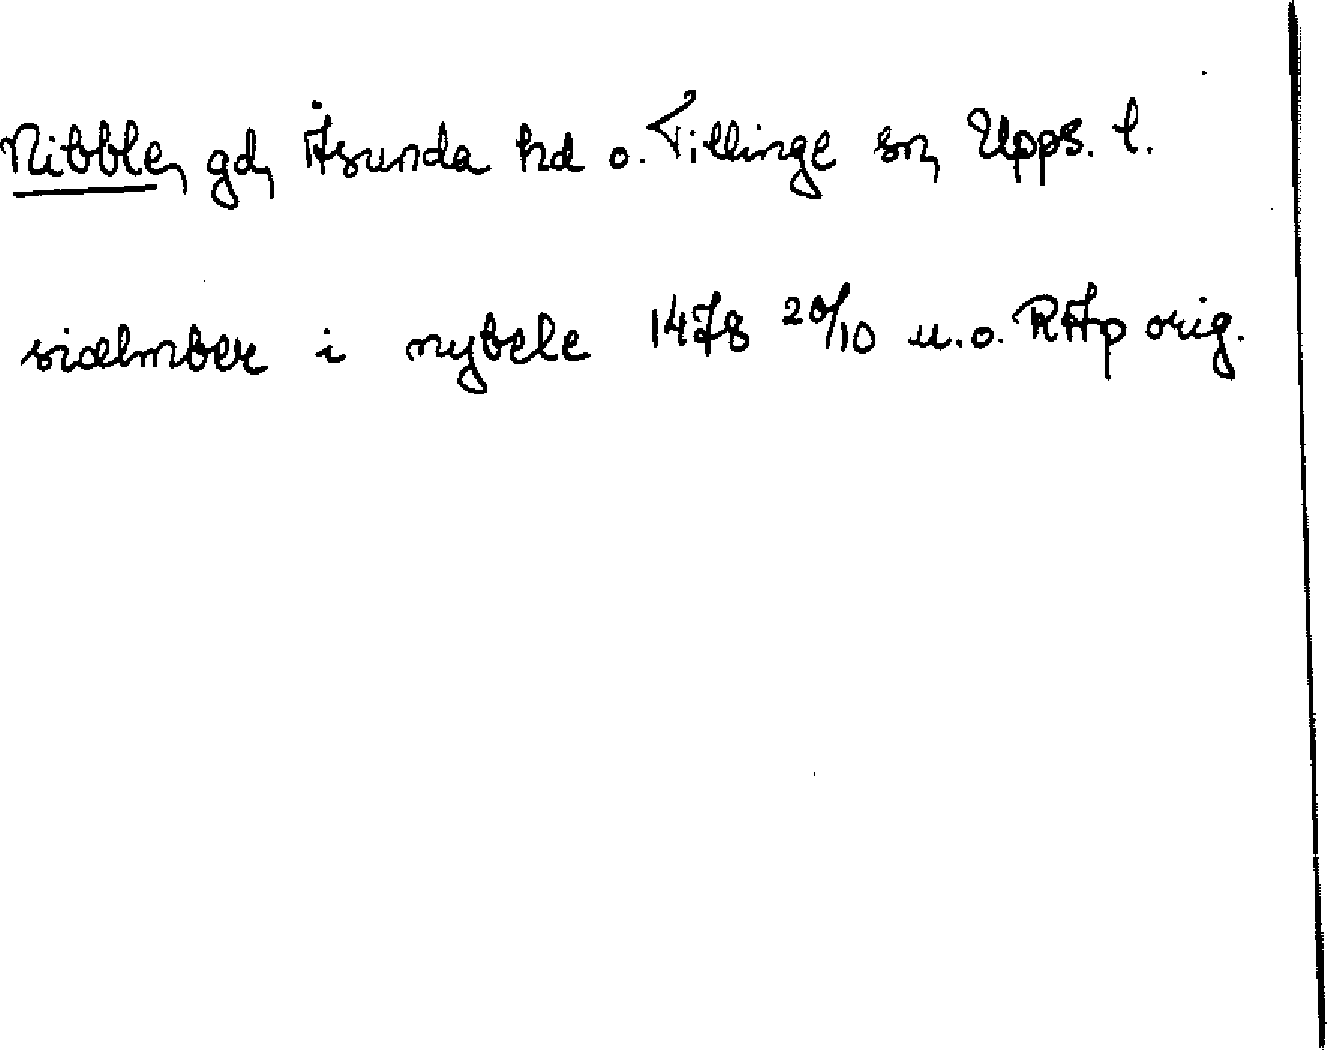 Nibble, gd, Åsunda hd o. Tillinge sn, Upps. l.
siælmber i nybele 1478 20/10 u.o. RAp orig.